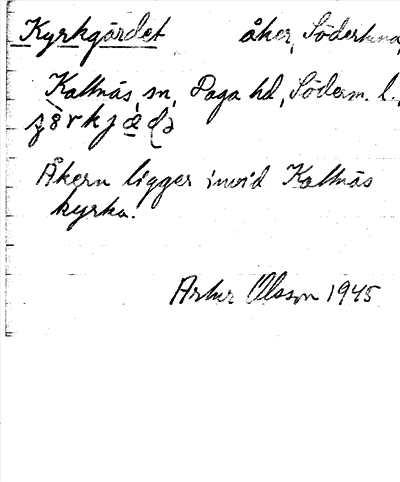 Kyrkgärdet åker, Södertuna,
Kattnäs sn, Daga hd, Söderm. l.,
Åkern ligger invid Kattnäs
kyrka.
Artur Olsson 1945